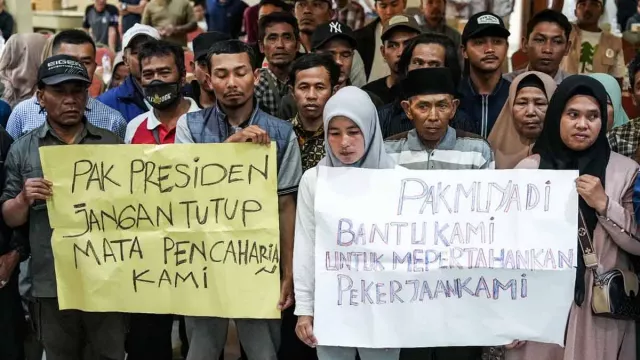 EIGER
PAK PRESIDEN
JANGAN TUTUP
MATA PENCAHARIA
KAMI
PAK MUYADI
BANTU KAMI
UNTUK MEPERTAHANKAN
PEKERJAAN KAMI